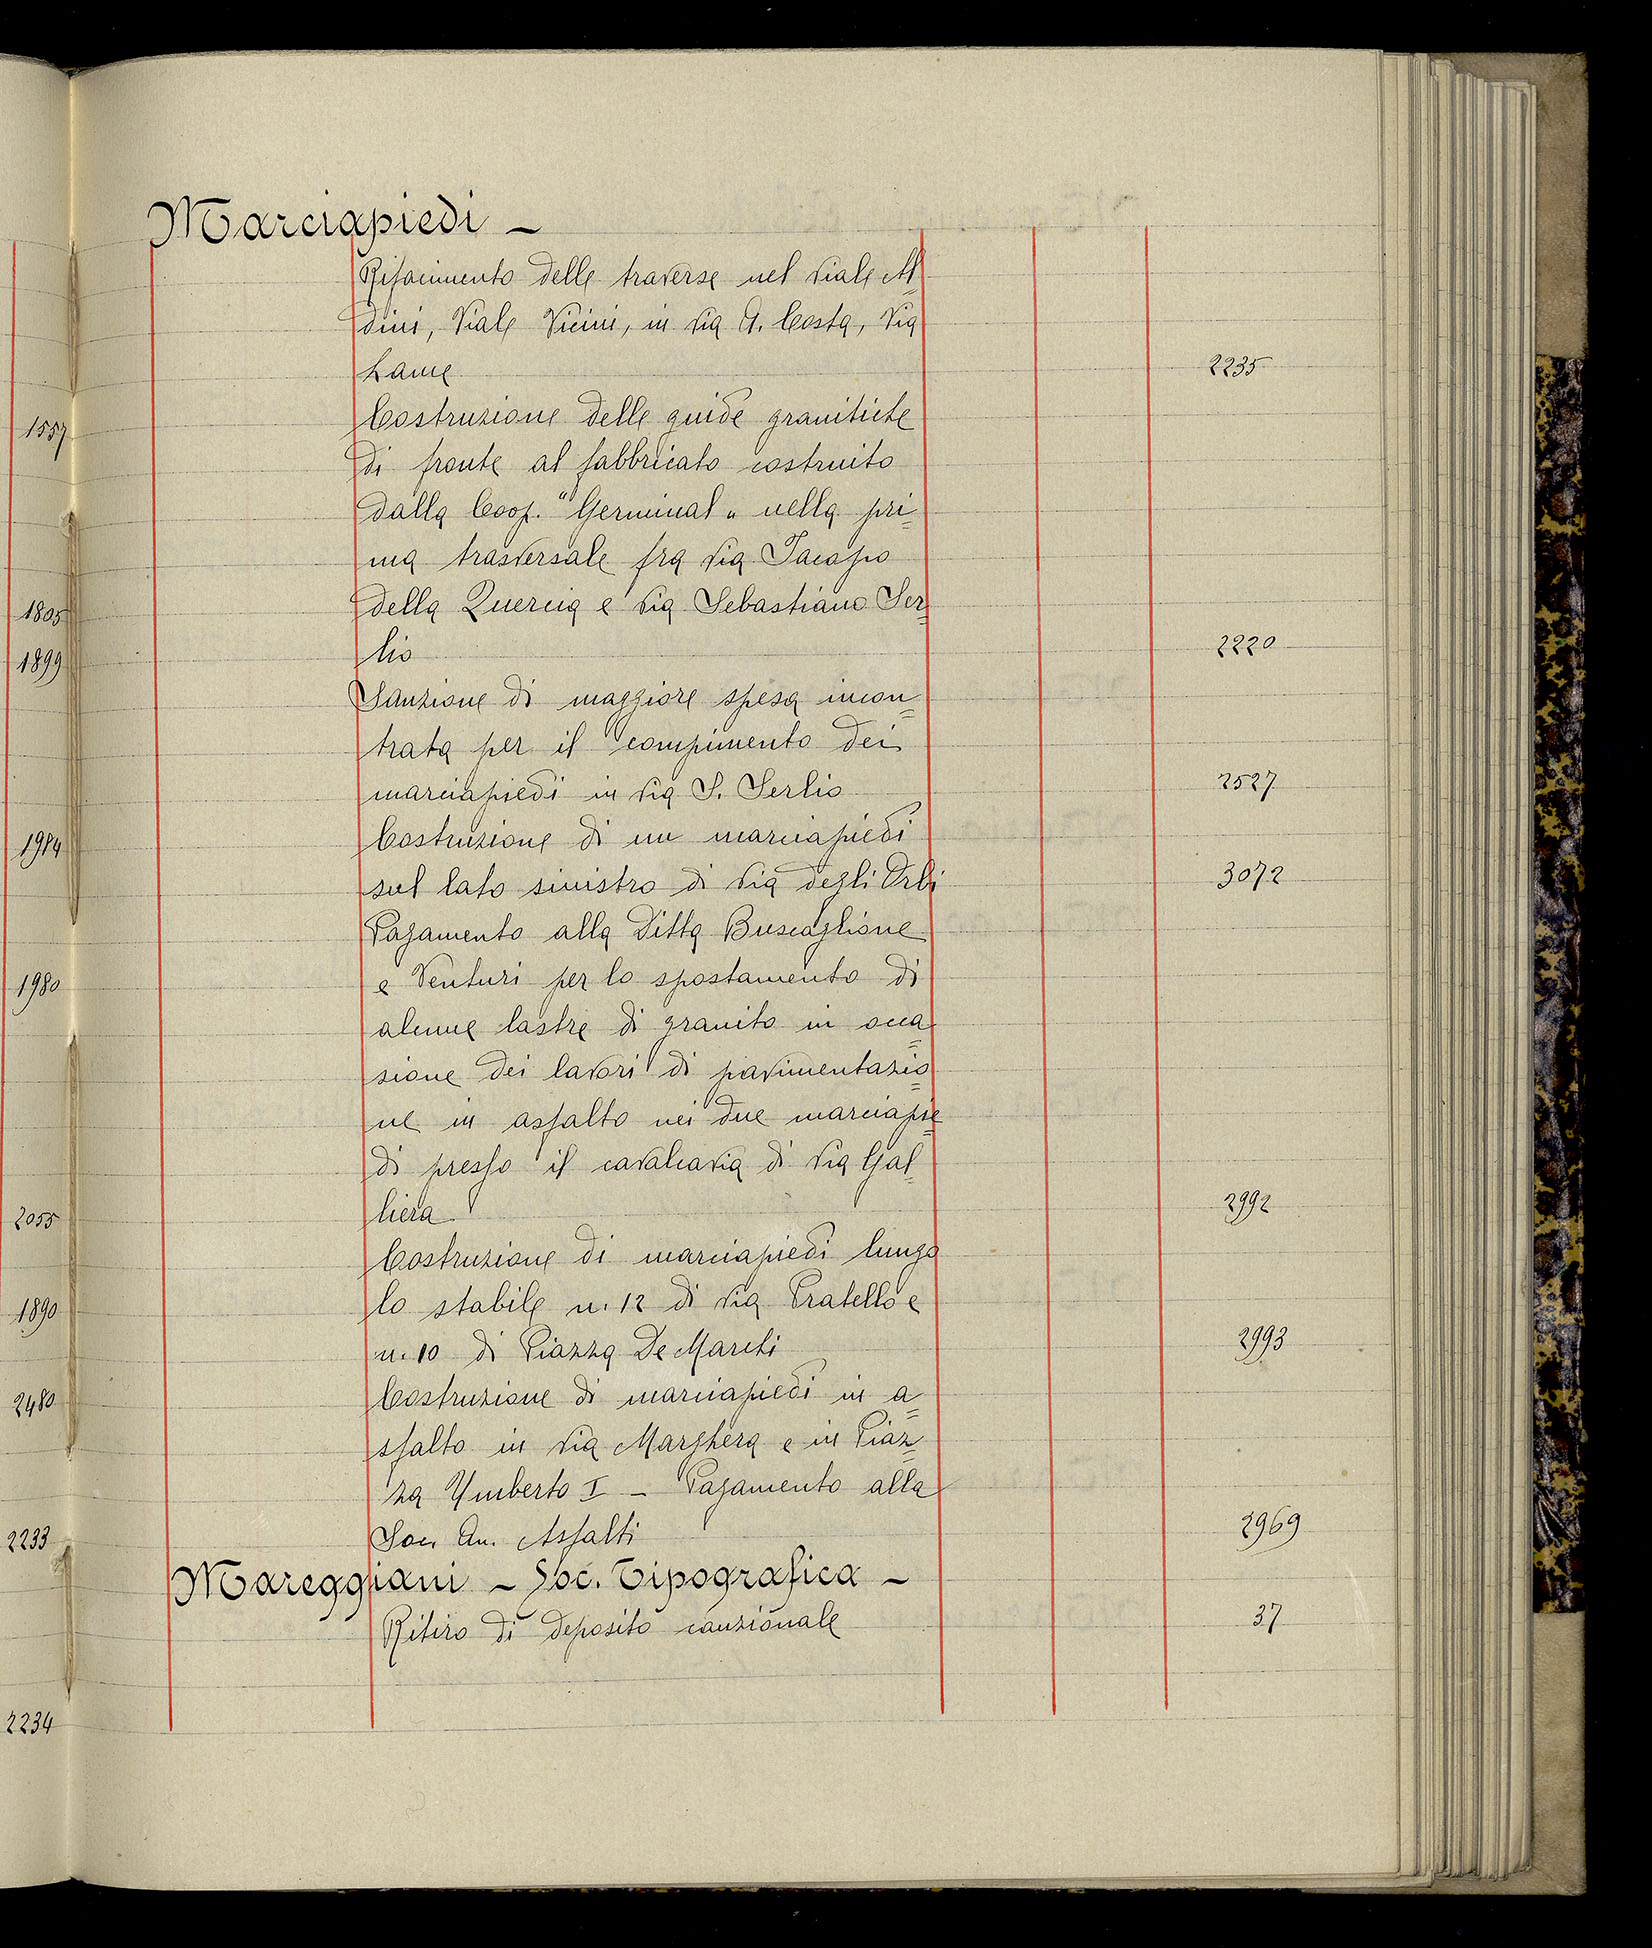 Marciapiedi –
Rifacimento delle traverse nel viale Al=
dini, Viale Vicini, in via A. Costa, Via
Lame 2235
Costruzione delle guide granitiche
di fronte al fabbricato costruito
dalla Coop. "Germinal" nella pri=
ma trasversale fra via Jacopo
della Quercia e via Sebastiano Ser=
lio 2220
Sanzione di maggiore spesa incon=
trata per il compimento dei
marciapiedi in via S. Serlio 2527
Costruzione di un marciapiedi
sul lato sinistro di via degli Orbi 3072
Pagamento alla Ditta Buscaglione
e Venturi per lo spostamento di
alcune lastre di granito in occa=
sione dei lavori di pavimentazio=
ne in asfalto nei due marciapie=
di presso il cavalcavia di via Gal=
liera 2992
Costruzione di marciapiedi lungo
lo stabile n. 12 di via Pratello e
n. 10 di Piazza De Marchi 2993
Costruzione di marciapiedi in a=
sfalto in via Marghera e in Piaz=
za Umberto I – Pagamento alla
Soc. An. Asfalti 2969
Mareggiani – Soc. Tipografica –
Ritiro di deposito cauzionale 37
1557
1805
1899
1914
1980
2055
1890
2480
2233
2234